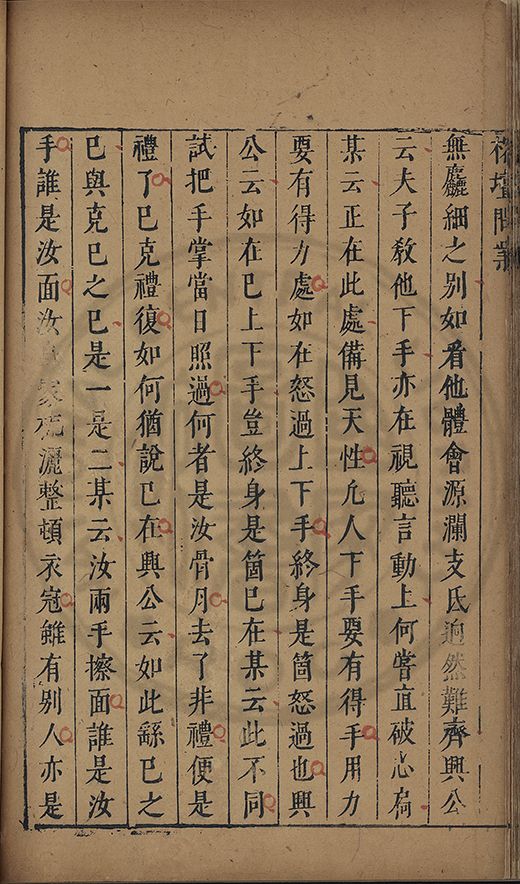 無麤細之別如看他體會源瀾支氏逈然難齊興公
云夫子教他下手亦在視聽言動上何嘗直破心扄
某云正在此處備見天性凢人下手要有得手用力
要有得力處如在怒過上下手終身是箇怒過也興
公云如在巳上下手豈終身是箇巳在某云此不同
試把手掌當日照過何者是汝骨月去了非禮便是
禮了巳克禮復如何猶說巳在興公云如此繇巳之
巳與克巳之巳是一是二某云汝兩手擦面誰是汝
手誰是汝面汝灑整頓衣冠雖有别人亦是